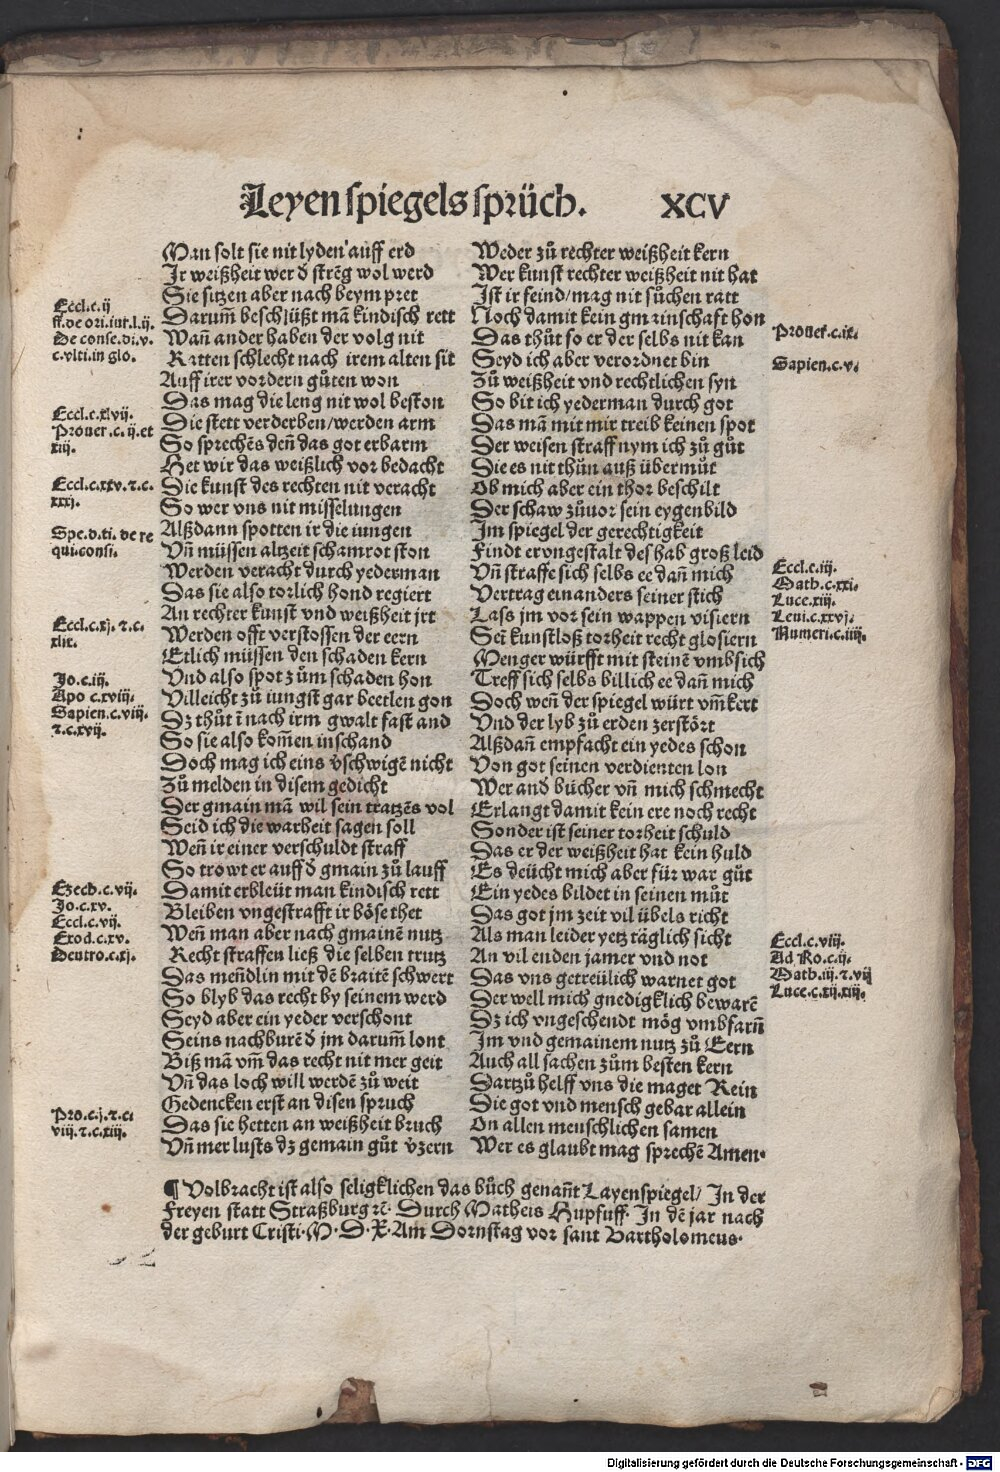 Leyen spiegels sprüch. XCV
Man solt sie nit lyden auff erd
Ir weißheit werd̄ strēg wol werd
Sie sitzen aber nach beym pret
Darum̄ beschlüßt mā kindisch rett
Wan̄ ander haben der volg nit
Ratten schlecht nach irem alten sit
Auff irer vordern gůten won
Das mag die leng nit wol beston
Die stett verderben/werden arm
So sprechēs den̄ das got erbarm
Het wir das weißlich vor bedacht
Die kunst des rechten nit veracht
So wer vns nit misselungen
Alßdann spotten ir die iungen
Vn̄ müssen altzeit schamrot ston
Werden veracht durch yederman
Das sie also torlich hond regiert
An rechter kunst vnd weißheit jrt
Werden offt verstossen der eern
Etlich müssen den schaden kern
Vnd also spot zům schaden hon
Villeicht zů iungst gar beetlen gon
Dz thůt ī nach irm gwalt fast and
So sie also kom̄en in schand
Doch mag ich eins v̄schwigē nicht
Zů melden in disem gedicht
Der gmain mā wil sein tratzēs vol
Seid ich die warheit sagen soll
Wen̄ ir einer verschuldt straff
So trowt er auff d̄ gmain zů lauff
Damit erbleüt man kindisch rett
Bleiben vngestrafft ir böse thet
Wen̄ man aber nach gmainē nutz
Recht straffen ließ die selben trutz
Das men̄dlin mit dē braitē schwert
So blyb das recht by seinem werd
Seyd aber ein yeder verschont
Seins nachburē d̄ jm darum̄ lont
Biß mā vm̄ das recht nit mer geit
Vn̄ das loch will werdē zů weit
Gedencken erst an disen spruch
Das sie hetten an weißheit bruch
Vn̄ mer lusts dz gemain gůt v̄zern
Weder zů rechter weißheit kern
Wer kunst rechter weißheit nit hat
Ist ir feind/mag nit sůchen ratt
Noch damit kein gmainschaft hon
Das thůt so er der selbs nit kan
Seyd ich aber verordnet bin
Zů weißheit vnd rechtlichen syn
So bit ich yederman durch got
Das mā mit mir treib keinen spot
Der weisen straff nym ich zů gůt
Die es nit thůn auß übermůt
Ob mich aber ein thor beschilt
Der schaw zůuor sein eygenbild
Im spiegel der gerechtigkeit
Findt er vngestalt des hab groß leid
Vn̄ straffe sich selbs ee dan̄ mich
Vertrag ein anders seiner stich
Lass jm vor sein wappen visiern
Sei kunstloß torheit recht glosiern
Menger würfft mit steinē vmb sich
Treff sich selbs billich ee dan̄ mich
Doch wen̄ der spiegel würt vm̄kert
Vnd der lyb zů erden zerstört
Alßdan̄ empfacht ein yedes schon
Von got seinen verdienten lon
Wer and̄ bücher vn̄ mich schmecht
Erlangt damit kein ere noch recht
Sonder ist seiner torheit schuld
Das er der weißheit hat kein huld
Es deücht mich aber für war gůt
Ein yedes bildet in seinen můt
Das got jm zeit vil übels richt
Als man leider yetz täglich sicht
An vil enden jamer vnd not
Das vns getreülich warnet got
Der well mich gnedigklich bewarē
Dz ich vngeschendt mög vmbfarn̄
Im vnd gemainem nutz zů Eern
Auch all sachen zům besten kern
Dartzů helff vns die maget Rein
Die got vnd mensch gebar allein
On allen menschlichen samen
Wer es glaubt mag sprechē Amen.
¶ Volbracht ist also seligklichen das bůch genan̄t Layenspiegel/ In der
Freyen statt Straßburg ꝛc̄. Durch Matheis Hupfuff. In dē jar nach
der geburt Cristi. M. D. X. Am Dornstag vor sant Bartholomeus.
Eccl.c.ij
ff.de ori.iur.l.ij.
De conse.di.v.
c.vlti.in glo.
Eccl.c.xlvij.
Prouer.c.ij.et
xiij.
Eccl.c.xxv.⁊.c.
xxxj.
Spe.d.ti. de re
qui.consi.
Eccl.c.xj. ⁊.c.
xlix.
Jo.c.iij.
Apo c.xviij.
Sapien.c.viij.
⁊.c.xvij.
Ezech.c.vij.
Jo.c.xv.
Eccl.c.vij.
Exod.c.xv.
Deutro.c.xj.
Pro.c.j.⁊.c.
viij.⁊.c.xiij.
Prouer.c.ix.
Sapien.c.v.
Eccl.c.iij.
Math.c.xxi.
Luce.xiij.
Leui.c.xxvj.
Numeri.c.iiij.
Eccl.c.viij.
Ad Ro.c.ij.
Math.iij.⁊.vij
Luce.c.xij.xiij.
Digitalisierung gefördert durch die Deutsche Forschungsgemeinschaft - DFG